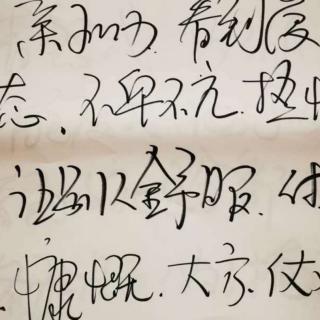 亲和力.看到
态、不卑不亢.
让别人舒服.
慷慨.大方.仗